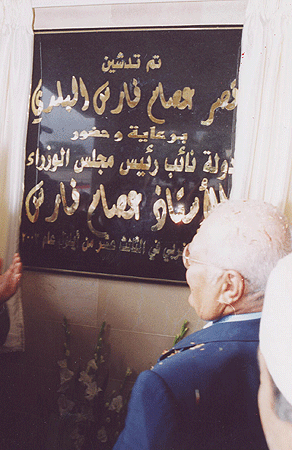 تم تدشين
قصر عصام فارس البلدي
برعاية وحضور
دولة نائب رئيس مجلس الوزراء
الأستاذ عصام فارس
في الثالث عشر من أيلول عام ٢٠٠٢